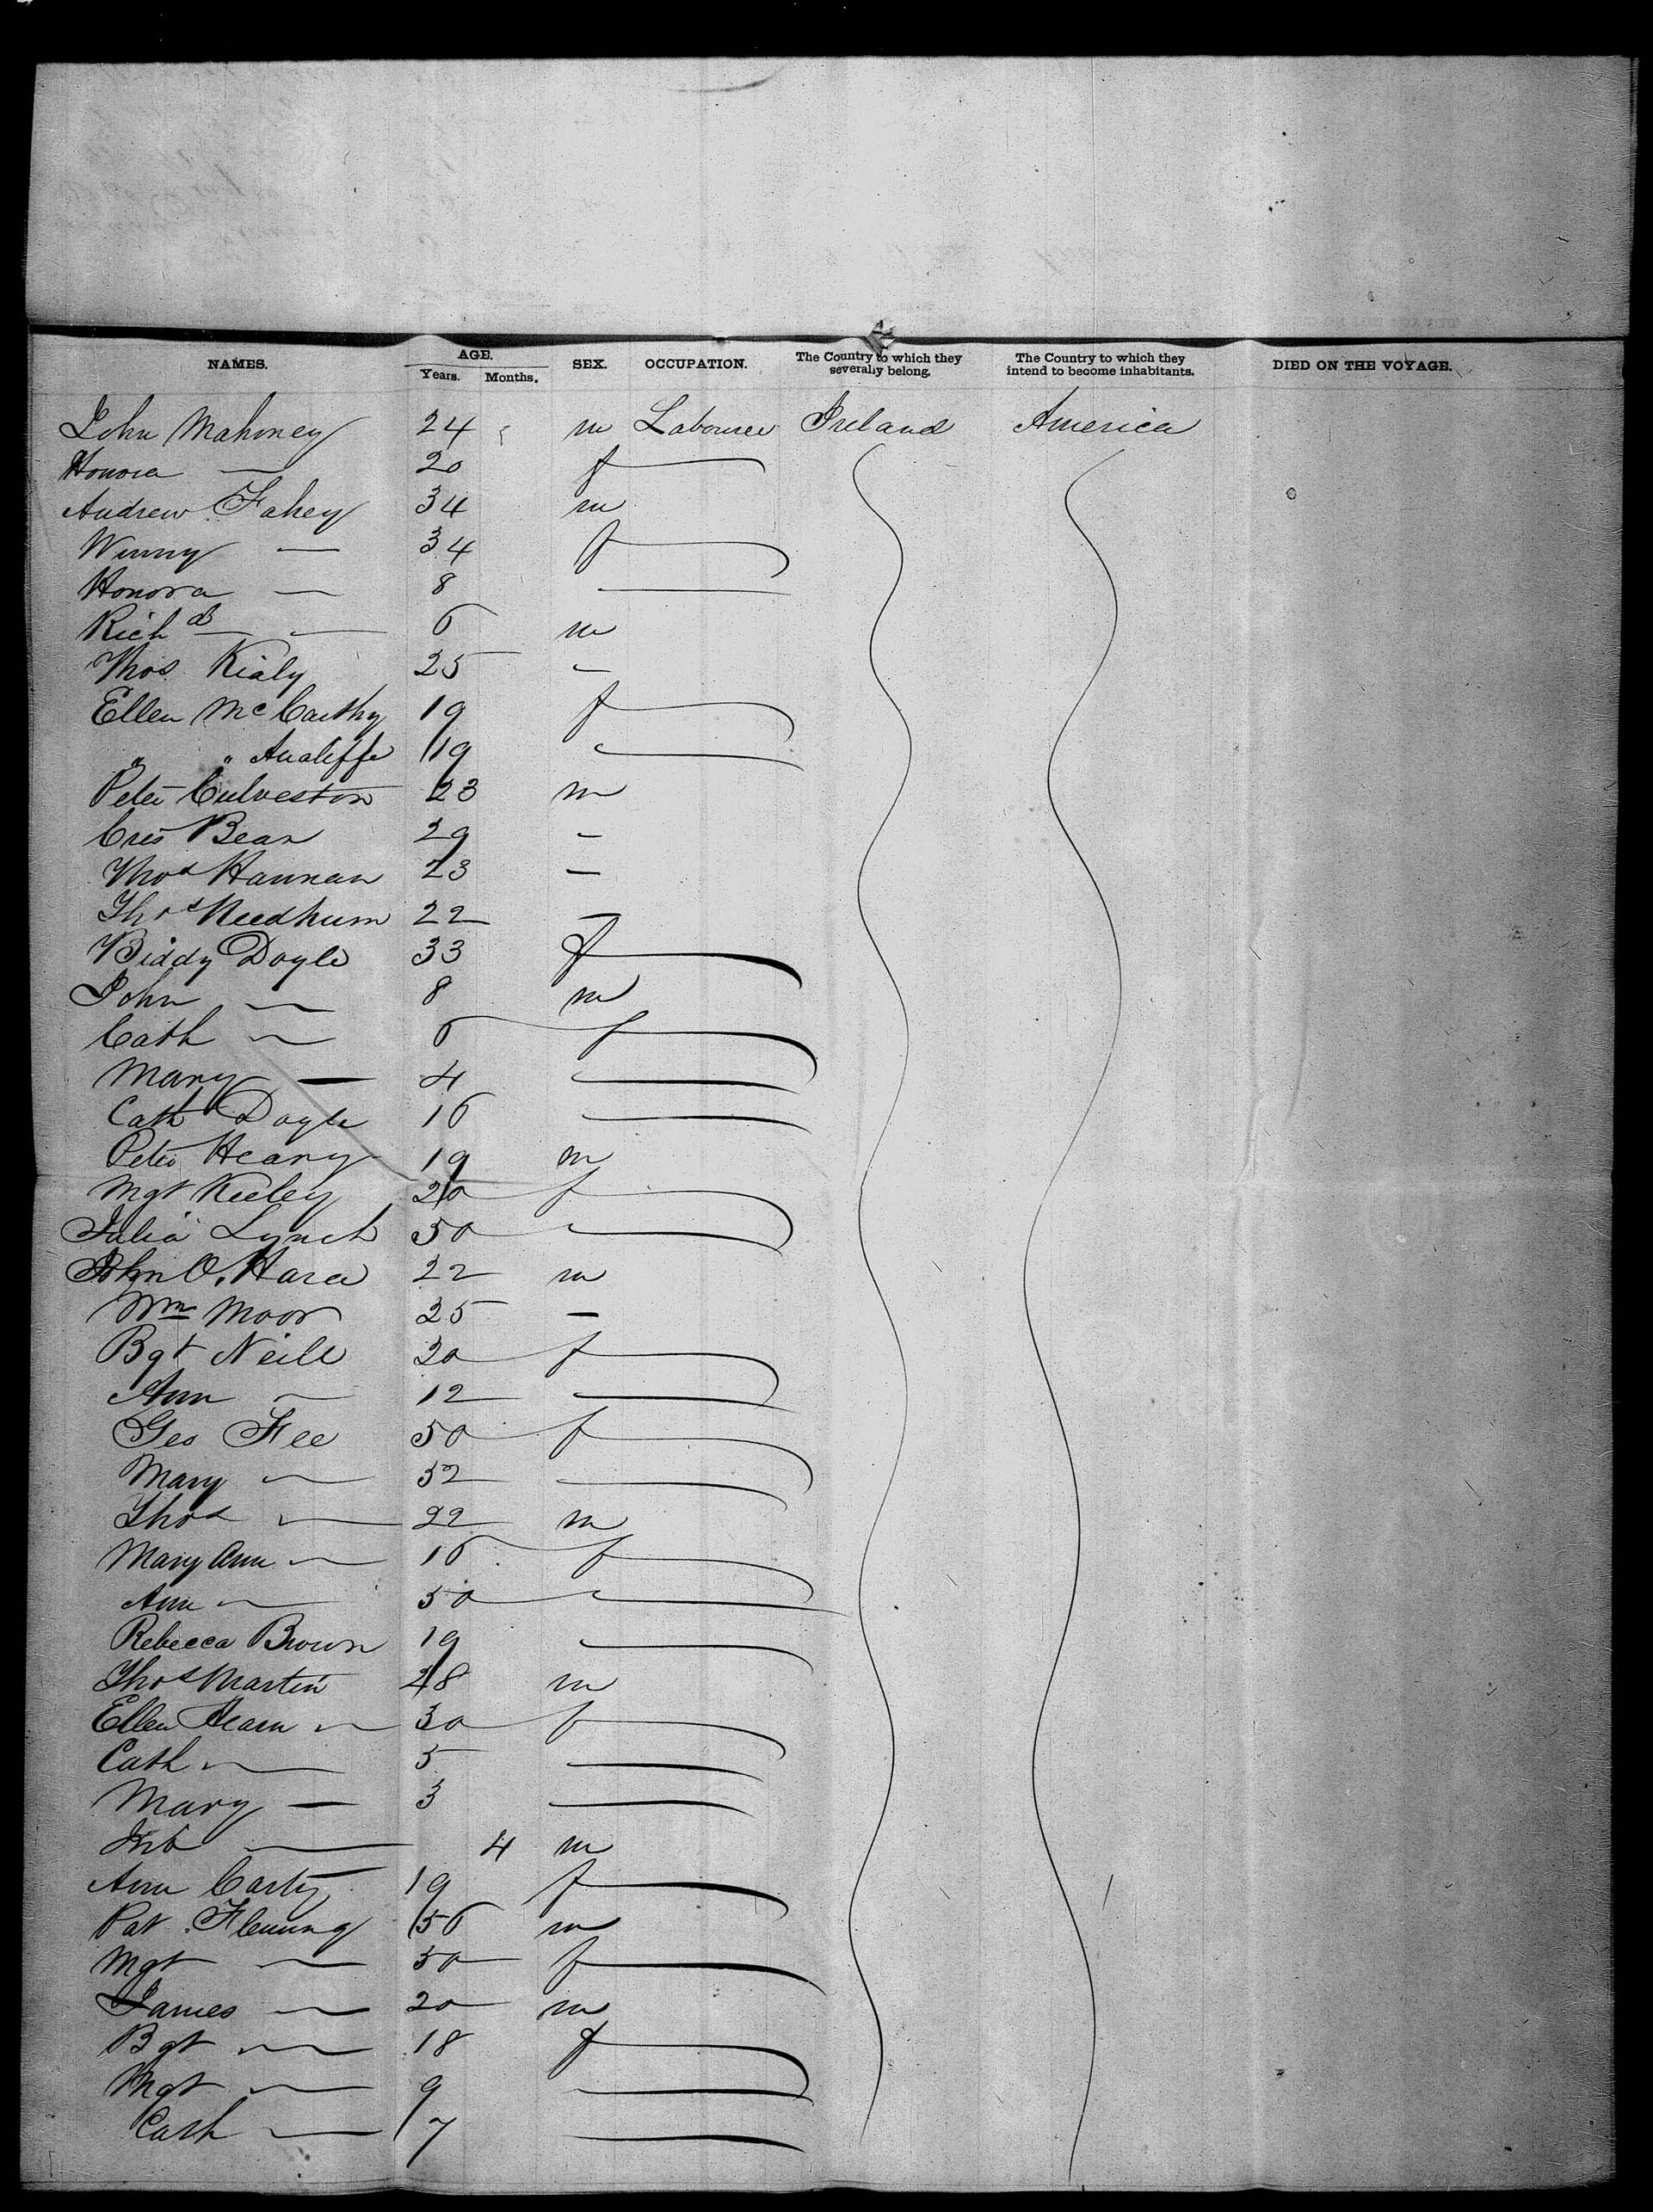 NAMES. AGE. SEX. OCCUPATION. The Country to which they severally belong. The Country to which they intend to become inhabitants. DIED ON THE VOYAGE.
Years. Months.
John Mahoney 24 m Labourer Ireland America
Honora — 20 f
Andrew Fahey 34 m
Winny — 34 f
Honora — 8 —
Richd — 6 m
Thos Kialy 25 —
Ellen McCarthy 19 f
" " Aualiffe 19 —
Peter Culveston 23 m
Cris Bean 29 —
Thos Hannan 23 —
Thos Needhum 22 —
Biddy Doyle 33 f
John — 8 m
Cath — 6 f
Mary — 4 —
Cath Doyle 16 —
Peter Heany 19 m
Mgt Keeley 20 f
Julia Lynch 50 —
John O'Hara 22 m
Wm Moor 25 —
Bgt Neill 20 f
Ann — 12 —
Geo Fee 50 f
Mary — 52 —
Thos — 22 m
Mary Ann — 16 f
Ann — 50 —
Rebecca Brown 19 —
Thos Martin 28 m
Ellen Hearn — 30 f
Cath — 5 —
Mary — 3 —
— 4 m
Ann Carty 19 f
Pat Fleming 56 m
Mgt — 50 f
James — 20 m
Bgt — 18 f
Mgt — 9 —
Cath — 7 —